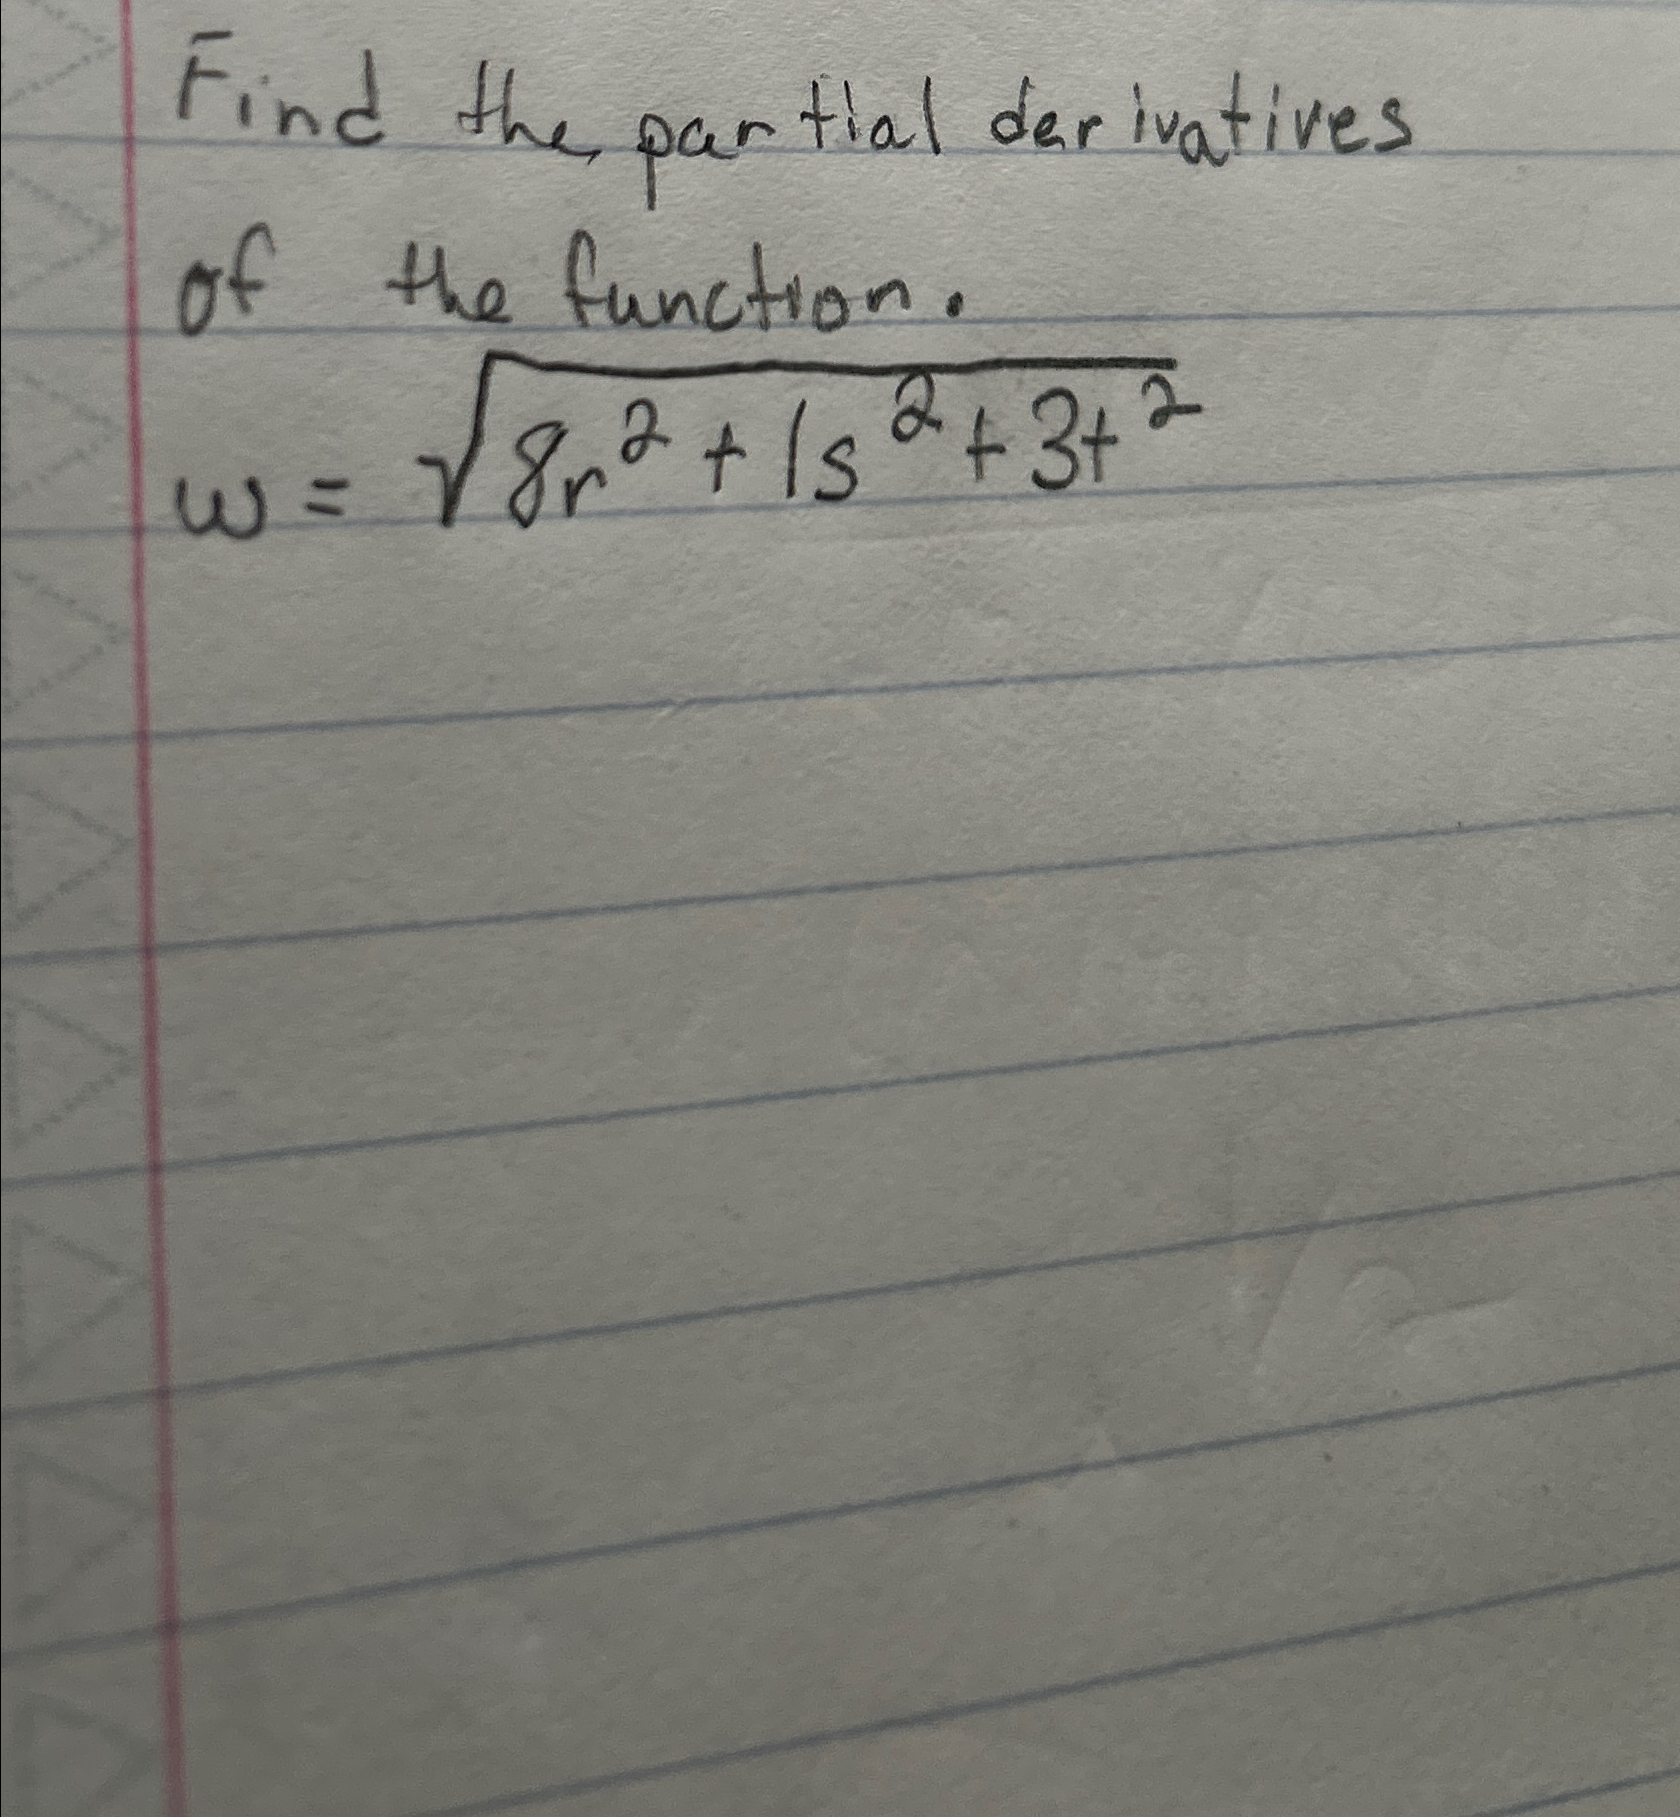 Find the partial derivatives
of the function.
w = √8r² + 1s² + 3t²